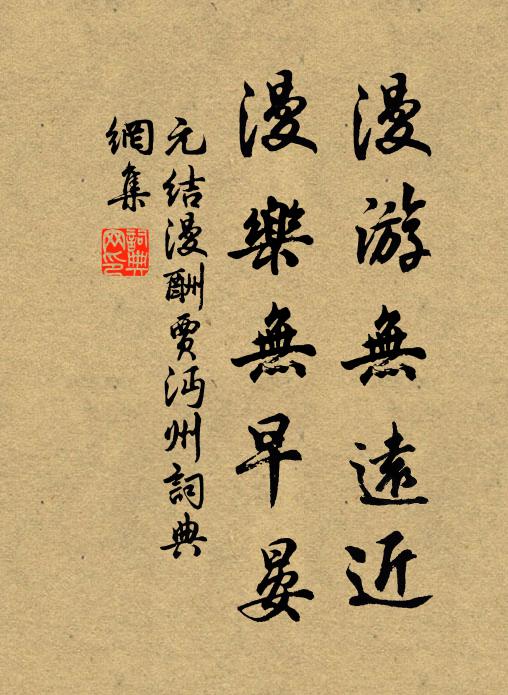 漫游無遠近
漫樂無早晏
元结漫酬贾沔州詞典
網集
詞典
网印